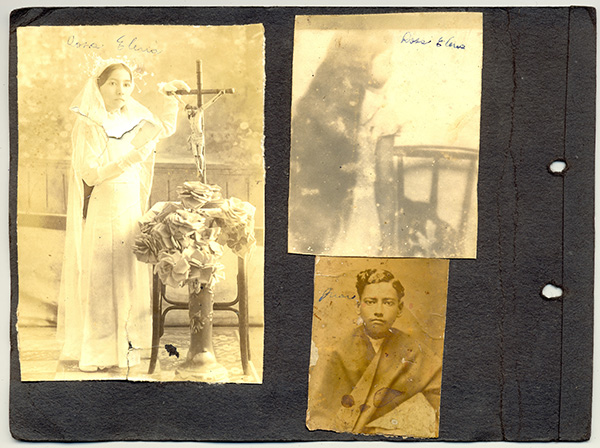 Rosa Elena
Rosa Elena